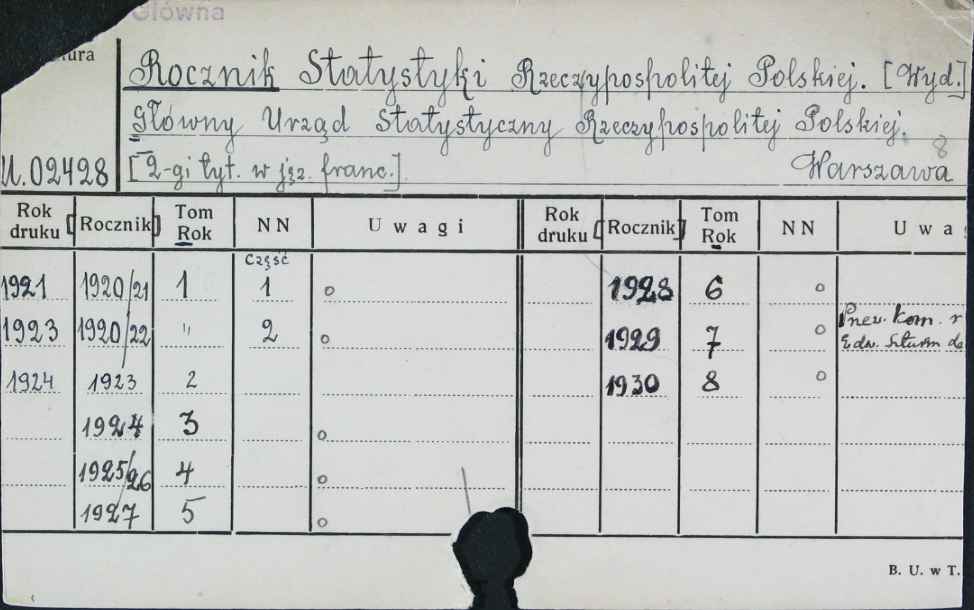 Główna
Rocznik Statystyki Rzeczypospolitej Polskiej. [Wyd.]
Główny Urząd Statystyczny Rzeczypospolitej Polskiej.
8
U.02428 [2-gi tyt. w jęz. franc.] Warszawa
Rok druku [Rocznik] Tom Rok NN Uwagi Rok druku [Rocznik] Tom Rok NN Uwa
Część
1921 1920/21 1 1 o 1928 6 o
1923 1920/22 " 2 o 1929 7 o kom. r
Edw.
1924 1923 2 1930 8 o
1924 3 o
1925/26 4 o
1927 5 o
B. U. w T.